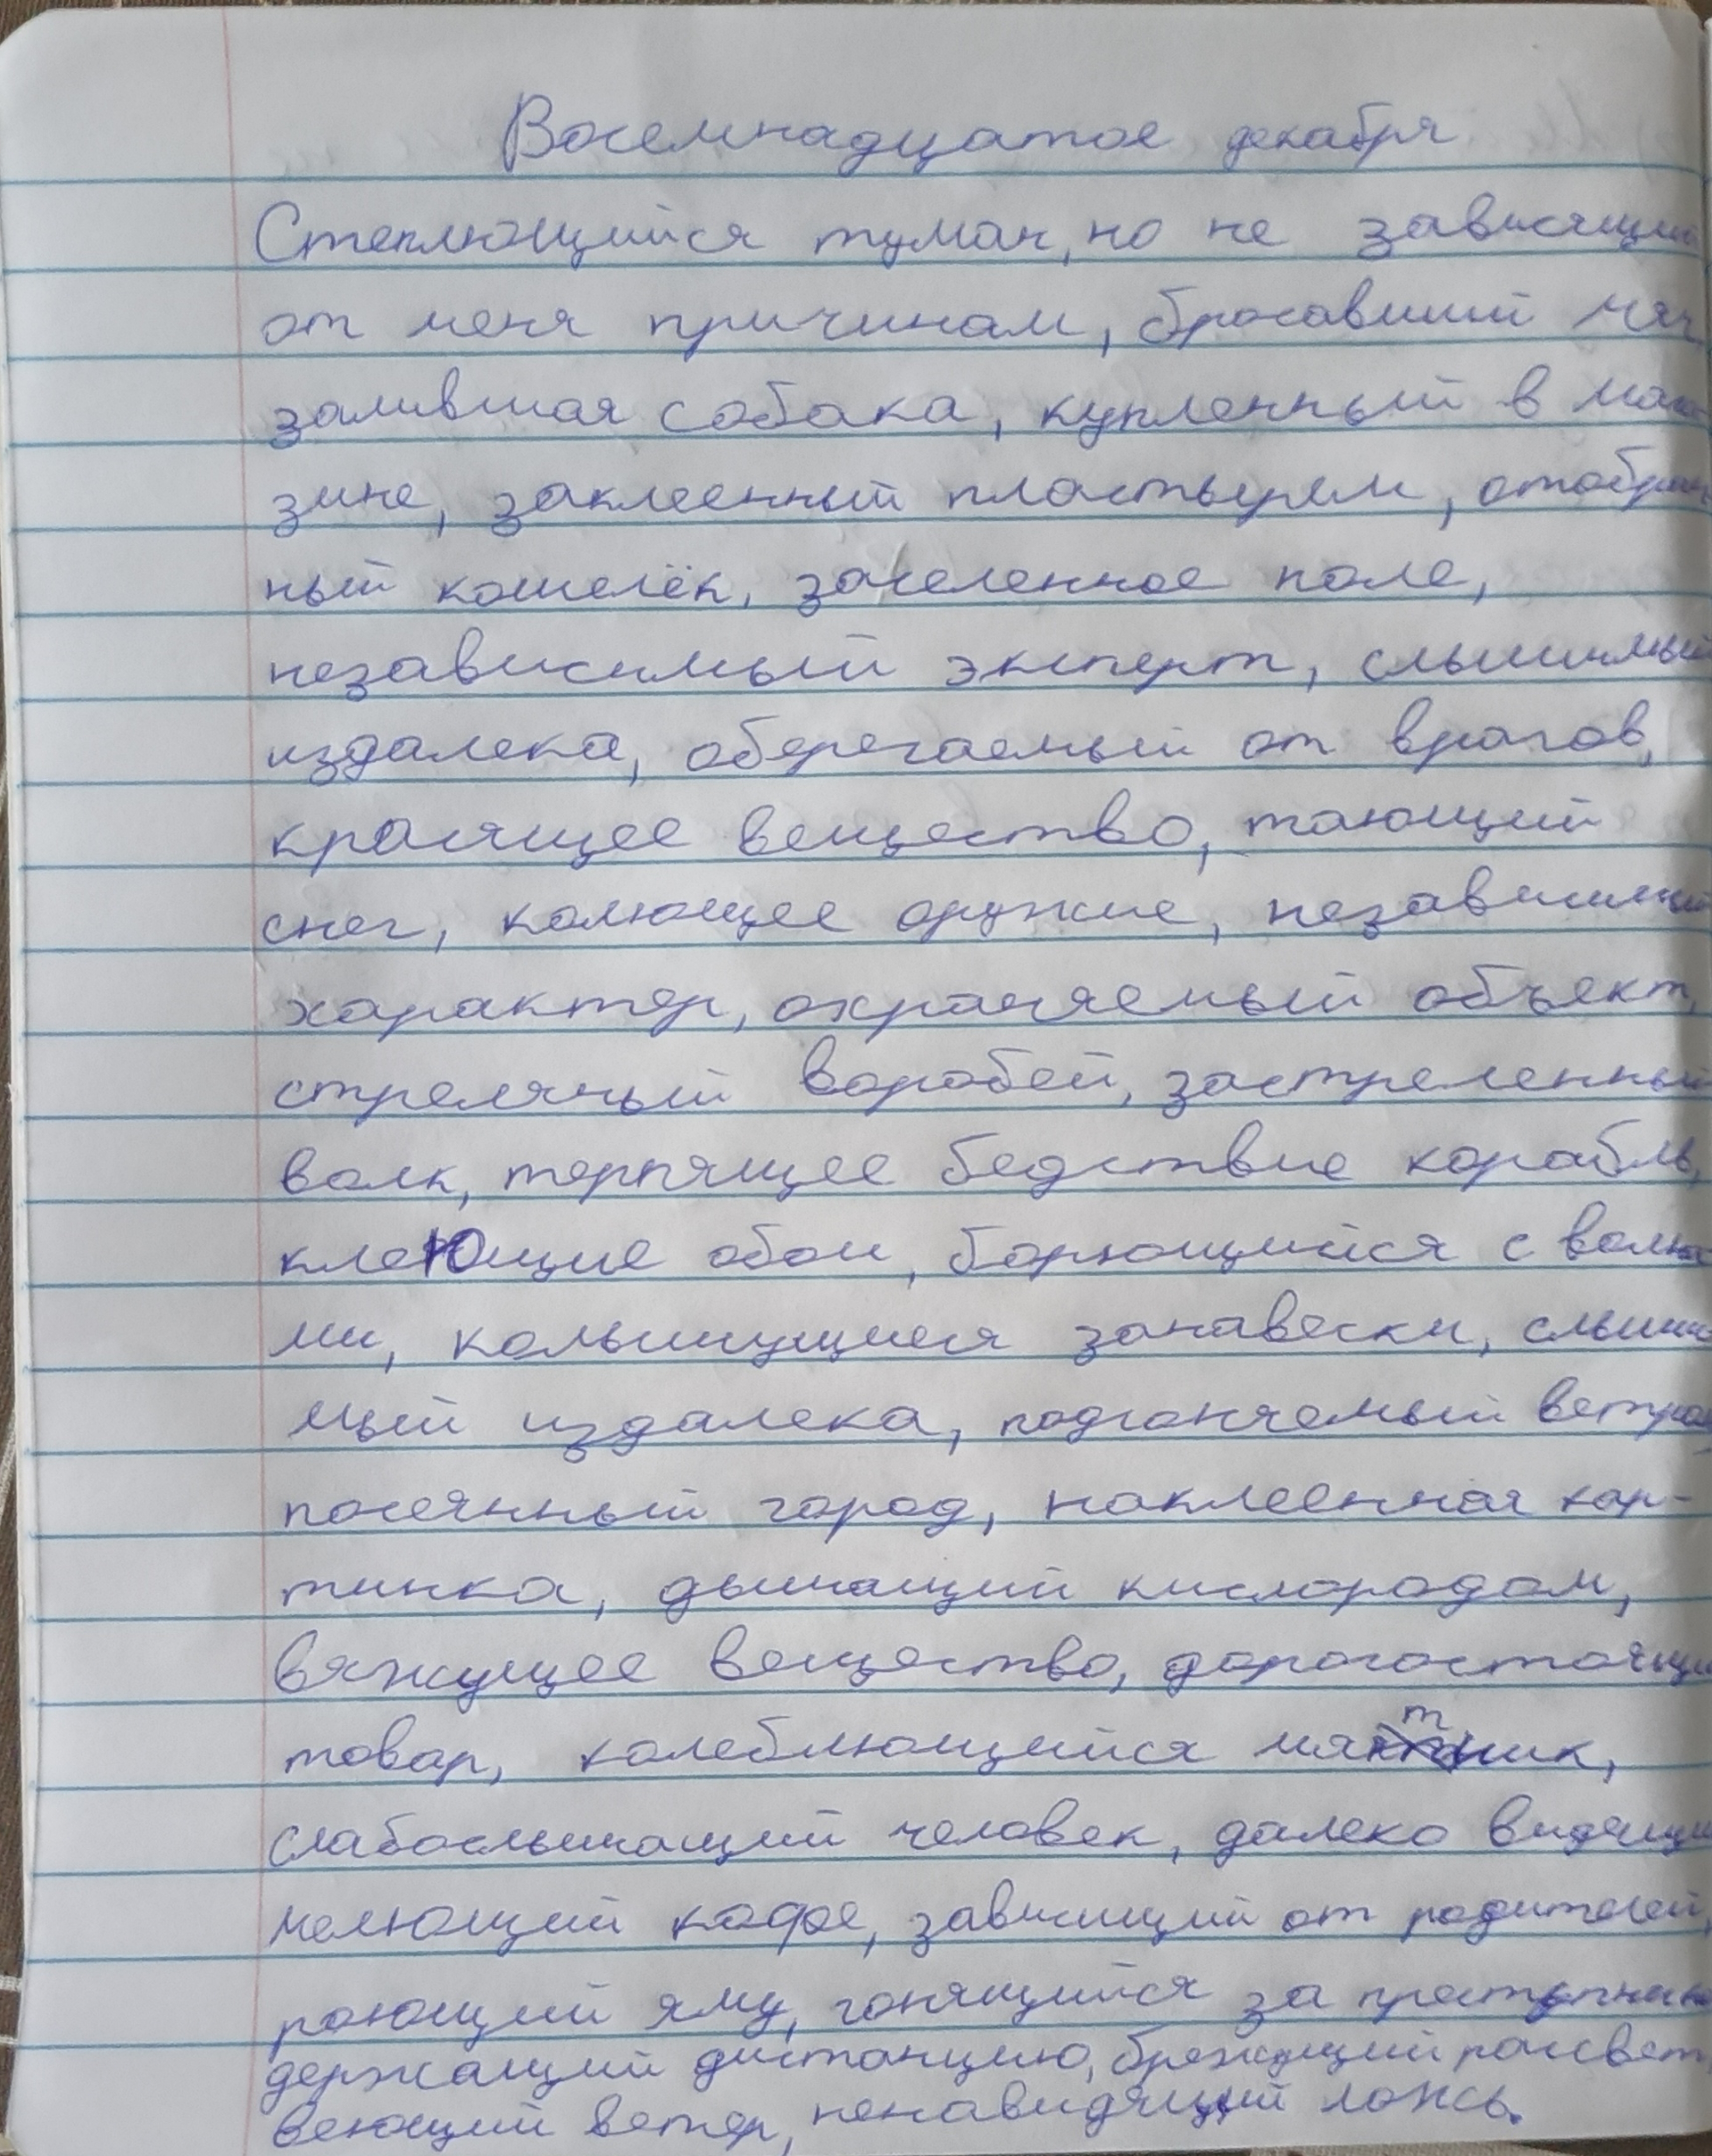 Восемнадцатое декабря
Стеклющийся туман, но не зависящий
от меня причинам, бросавший мяч,
залившая собака, купленный в мага-
зине, заклеенный пластырем, отобран-
ный кошелёк, заселенное поле,
независимый эксперт, слышимый
издалека, оберегаемый от врагов,
красящее вещество, тающий
снег, колющее оружие, независимый
характер, охраняемый объект,
стреляный воробей, застреленный
волк, терпящее бедствие корабль,
клеющие обои, борющийся с волна
ми, колышущиеся занавески, слыши
мый издалека, подгоняемый ветром,
посеянный город, наклеенная кар-
тинка, дышащий кислородом,
вяжущее вещество, дорогостоящи
товар, колеблющийся маятник,
слабослышащий человек, далеко видящи
мелющий кофе, зависящий от родителей,
роющий яму, гонящийся за преступник
держащий дистанцию, брезжущий рассвет,
веющий ветер, ненавидящий ложь.